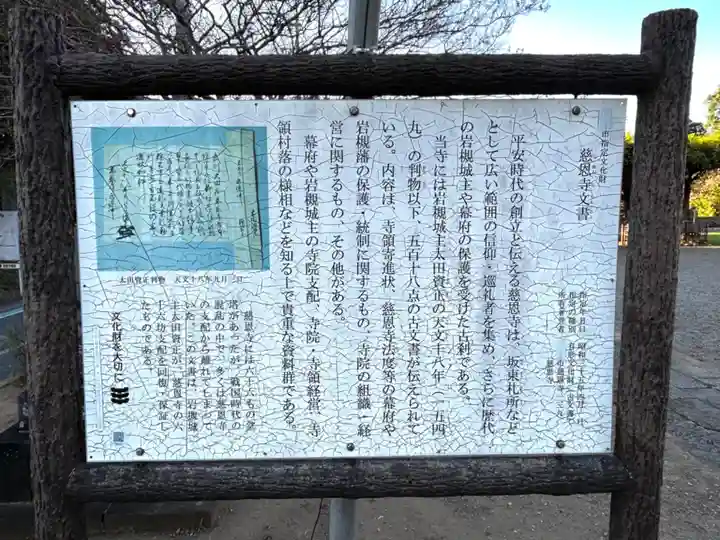 市指定文化財
慈恩寺文書
指定年月日
指定の種別
所有者管理者
慈恩寺
平安時代の創立と伝える慈恩寺は、坂東札所など
として広い範囲の信仰・巡礼者を集め、さらに歴代
の岩槻城主や幕府の保護を受けた古刹である。
当寺には岩槻城主太田資正の天文十八年(一五四
九)の判物以下、五百十八点の古文書が伝えられて
いる。内容は、寺領寄進状、慈恩寺法度等の幕府や
岩槻藩の保護・統制に関するもの、寺院の組織・経
営に関するもの、その他がある。
幕府や岩槻城主の寺院支配、寺院・寺領経営、寺
領村落の様相などを知る上で貴重な資料群である。
太田資正判物 天文十八年九月三日
慈恩寺には六十六もの堂
塔があったが、戦国時代の
混乱の中で、多くは慈恩寺
の支配から離れてしまって
いた。この文書は、岩槻城
主太田資正が、慈恩寺の六
十六坊支配を回復・保証し
たものである。
文化財を大切に